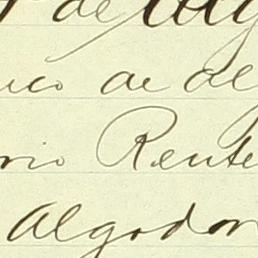 de
uco de al
rio Rente
Algodon